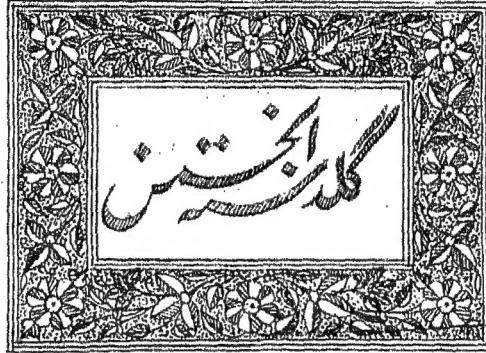 گلدستہ انجمن